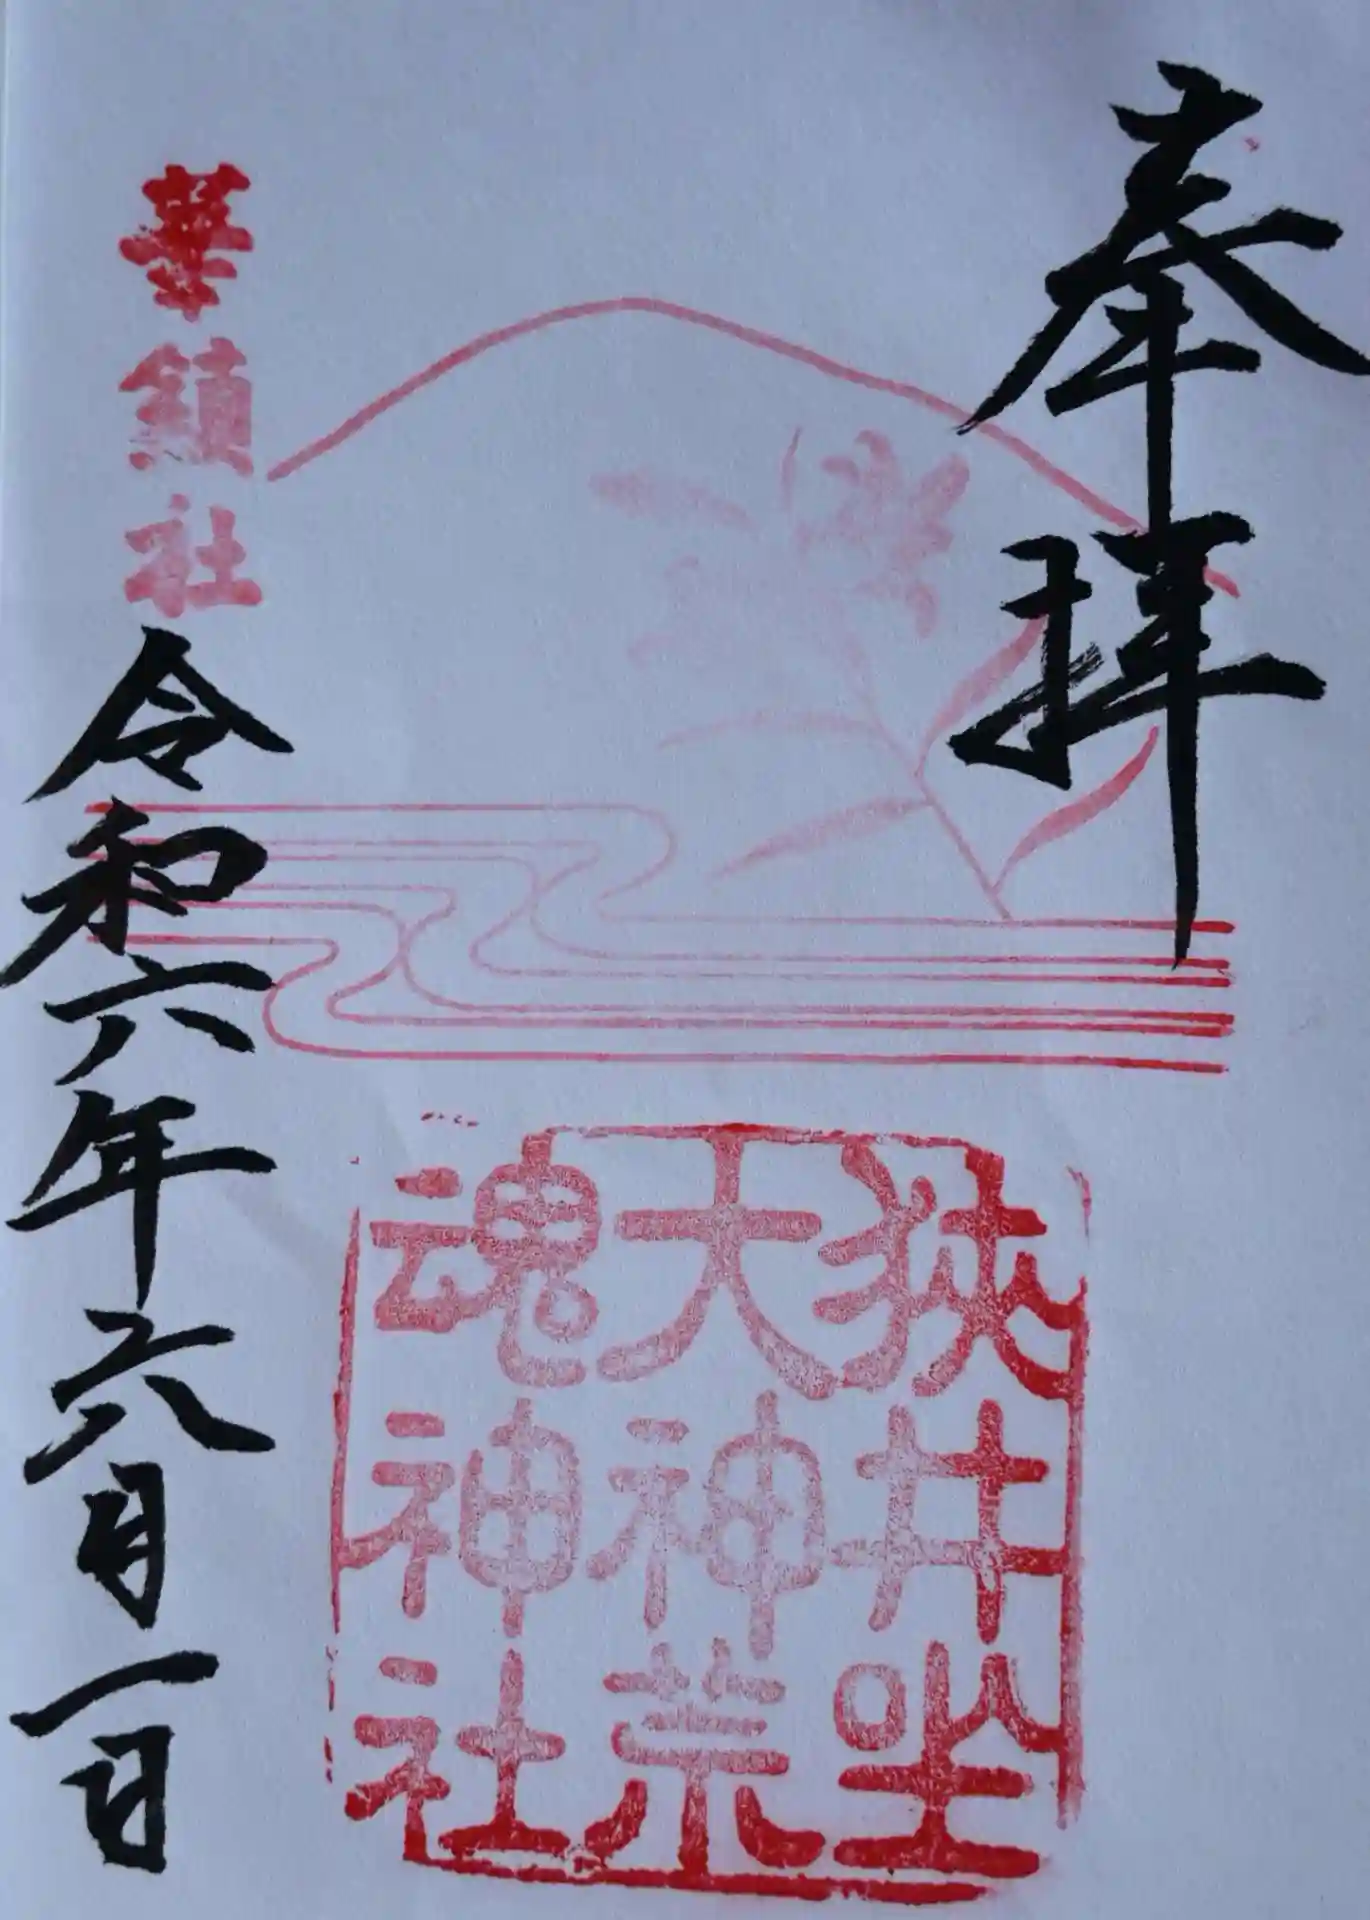 奉拝
狭井坐
大神荒
魂神社
華鎮社
令和六年六月一日